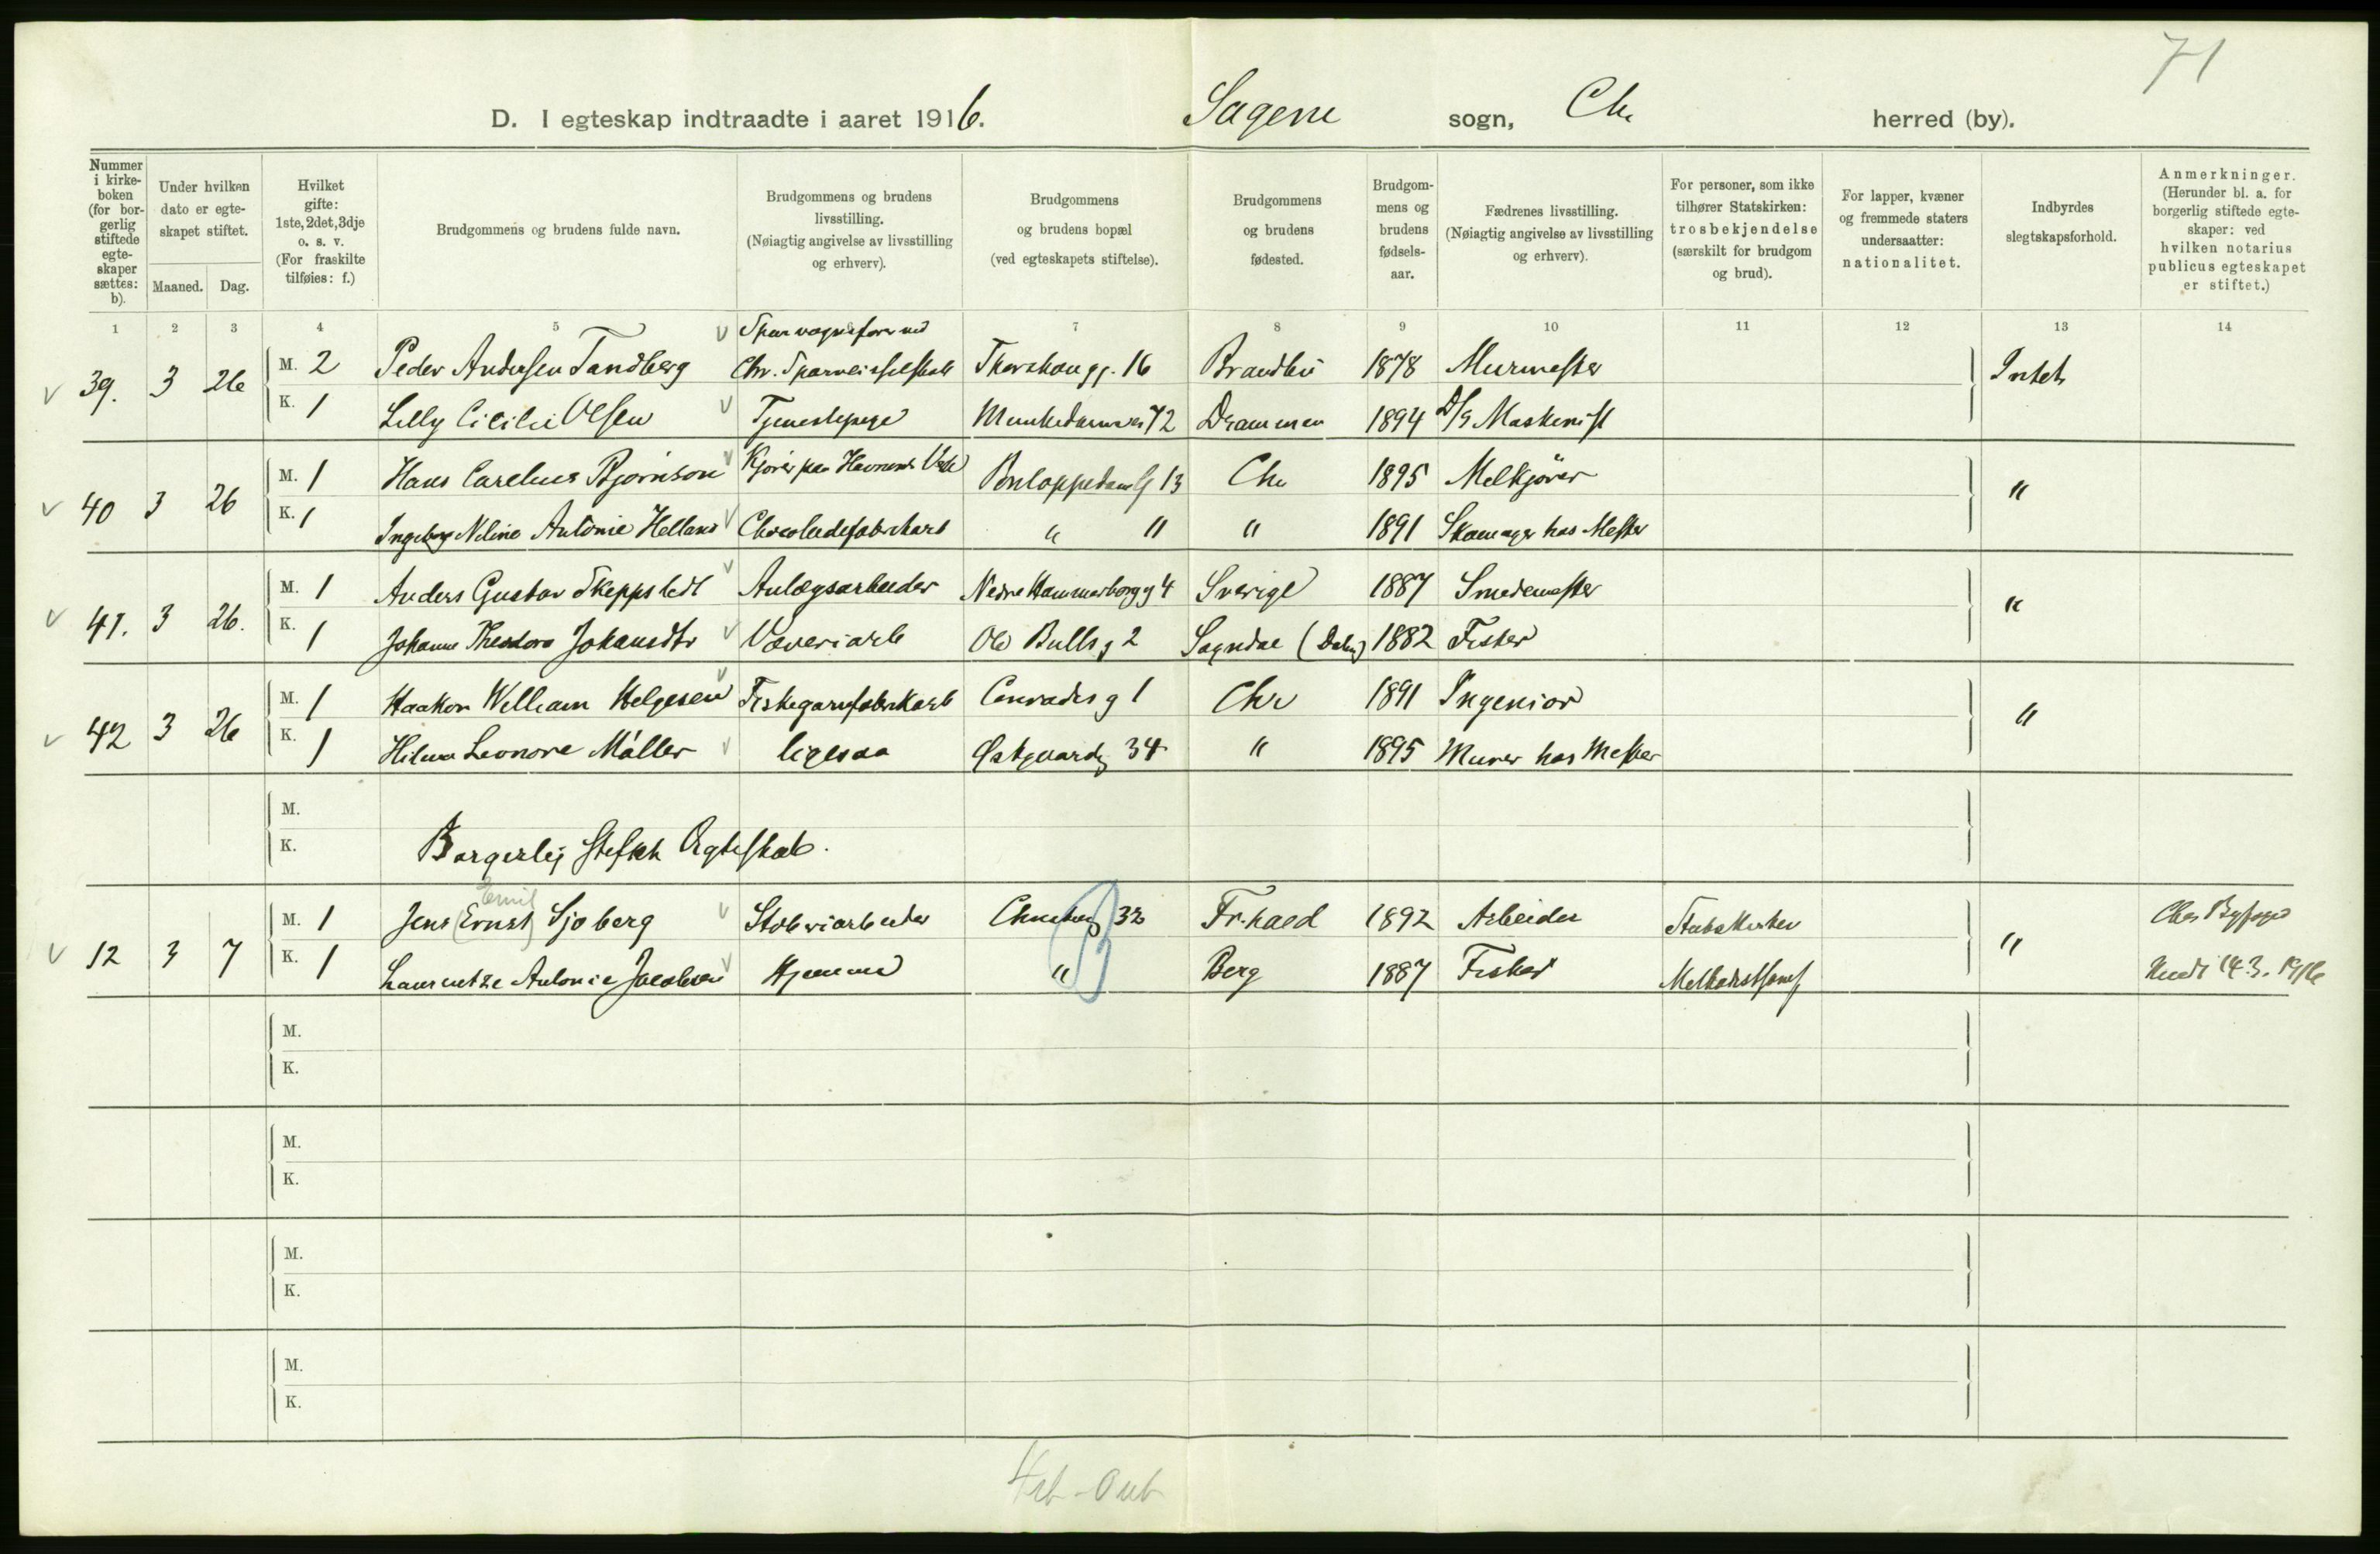 71
D. I egteskap indtraadte i aaret 1916. Sagene sogn, Chr. herred (by).
Nummer i kirkeboken (for borgerlig stiftede egteskaper sættes: b).
Under hvilken dato er egteskapet stiftet.
Maaned. Dag.
Hvilket gifte: 1ste, 2det, 3dje o. s. v. (For fraskilte tilføies: f.)
Brudgommens og brudens fulde navn.
Brudgommens og brudens livsstilling. (Nøiagtig angivelse av livsstilling og erhverv).
Brudgommens og brudens bopæl (ved egteskapets stiftelse).
Brudgommens og brudens fødested.
Brudgommens og brudens fødselsaar.
Fædrenes livsstilling. (Nøiagtig angivelse av livsstilling og erhverv).
For personer, som ikke tilhører Statskirken: trosbekjendelse (særskilt for brudgom og brud).
For lapper, kvæner og fremmede staters undersaatter: nationalitet.
Indbyrdes slegtskapsforhold.
Anmerkninger. (Herunder bl. a. for borgerlig stiftede egteskaper: ved hvilken notarius publicus egteskapet er stiftet.)
1 2 3 4 5 6 7 8 9 10 11 12 13 14
Sporvognsfører ved
39. 3 26 M. 2 Peder Andersen Tandberg Chr. Sporveisselskab Thorshaugg. 16 Brandbu 1878 Murmester Intet
K. 1 Lilly Cicilie Olsen Tjenestepige Munkedamsvei 72 Drammen 1894 D/S Maskinist
40 3 26 M. 1 Hans Carelius Bjørnson Kjører paa Havnens 13 Chr 1895 Melkjører "
K. 1 Ingeborg Neline Antonie Helland Chocoladefabrikarb " " " 1891 Skomager hos Mester
41. 3 26. M. 1 Anders Gustav Skeppstedt Anlægsarbeider Nedre Hammersborg g 4 Sverige 1887 Smedemester "
K. 1 Johanne Theodora Johansdtr Væveriarb Ole Bulls g 2 Sogndal (Dalene) 1882 Fisker
42 3 26 M. 1 Haakon William Helgesen Fiskegarnfabrikarb Conradis g 1 Chr 1891 Ingeniør "
K. 1 Hilma Leonore Møller ligesaa Østgaardsg 34 " 1895 Murer hos Mester
M.
K. Borgerlig stiftet Ægteskab.
Emil
12 3 7 M. 1 Jens (Ernst) Sjøberg Støberiarbeider 32 Fr.hald 1892 Arbeider Statskirken " Chra Byfoged
K. 1 Laurentze Antonie Jacobsen Hjemme " Berg 1887 Fisker Metodistsamf 14 3. 1916
B
M.
K.
M.
K.
M.
K.
M.
K.